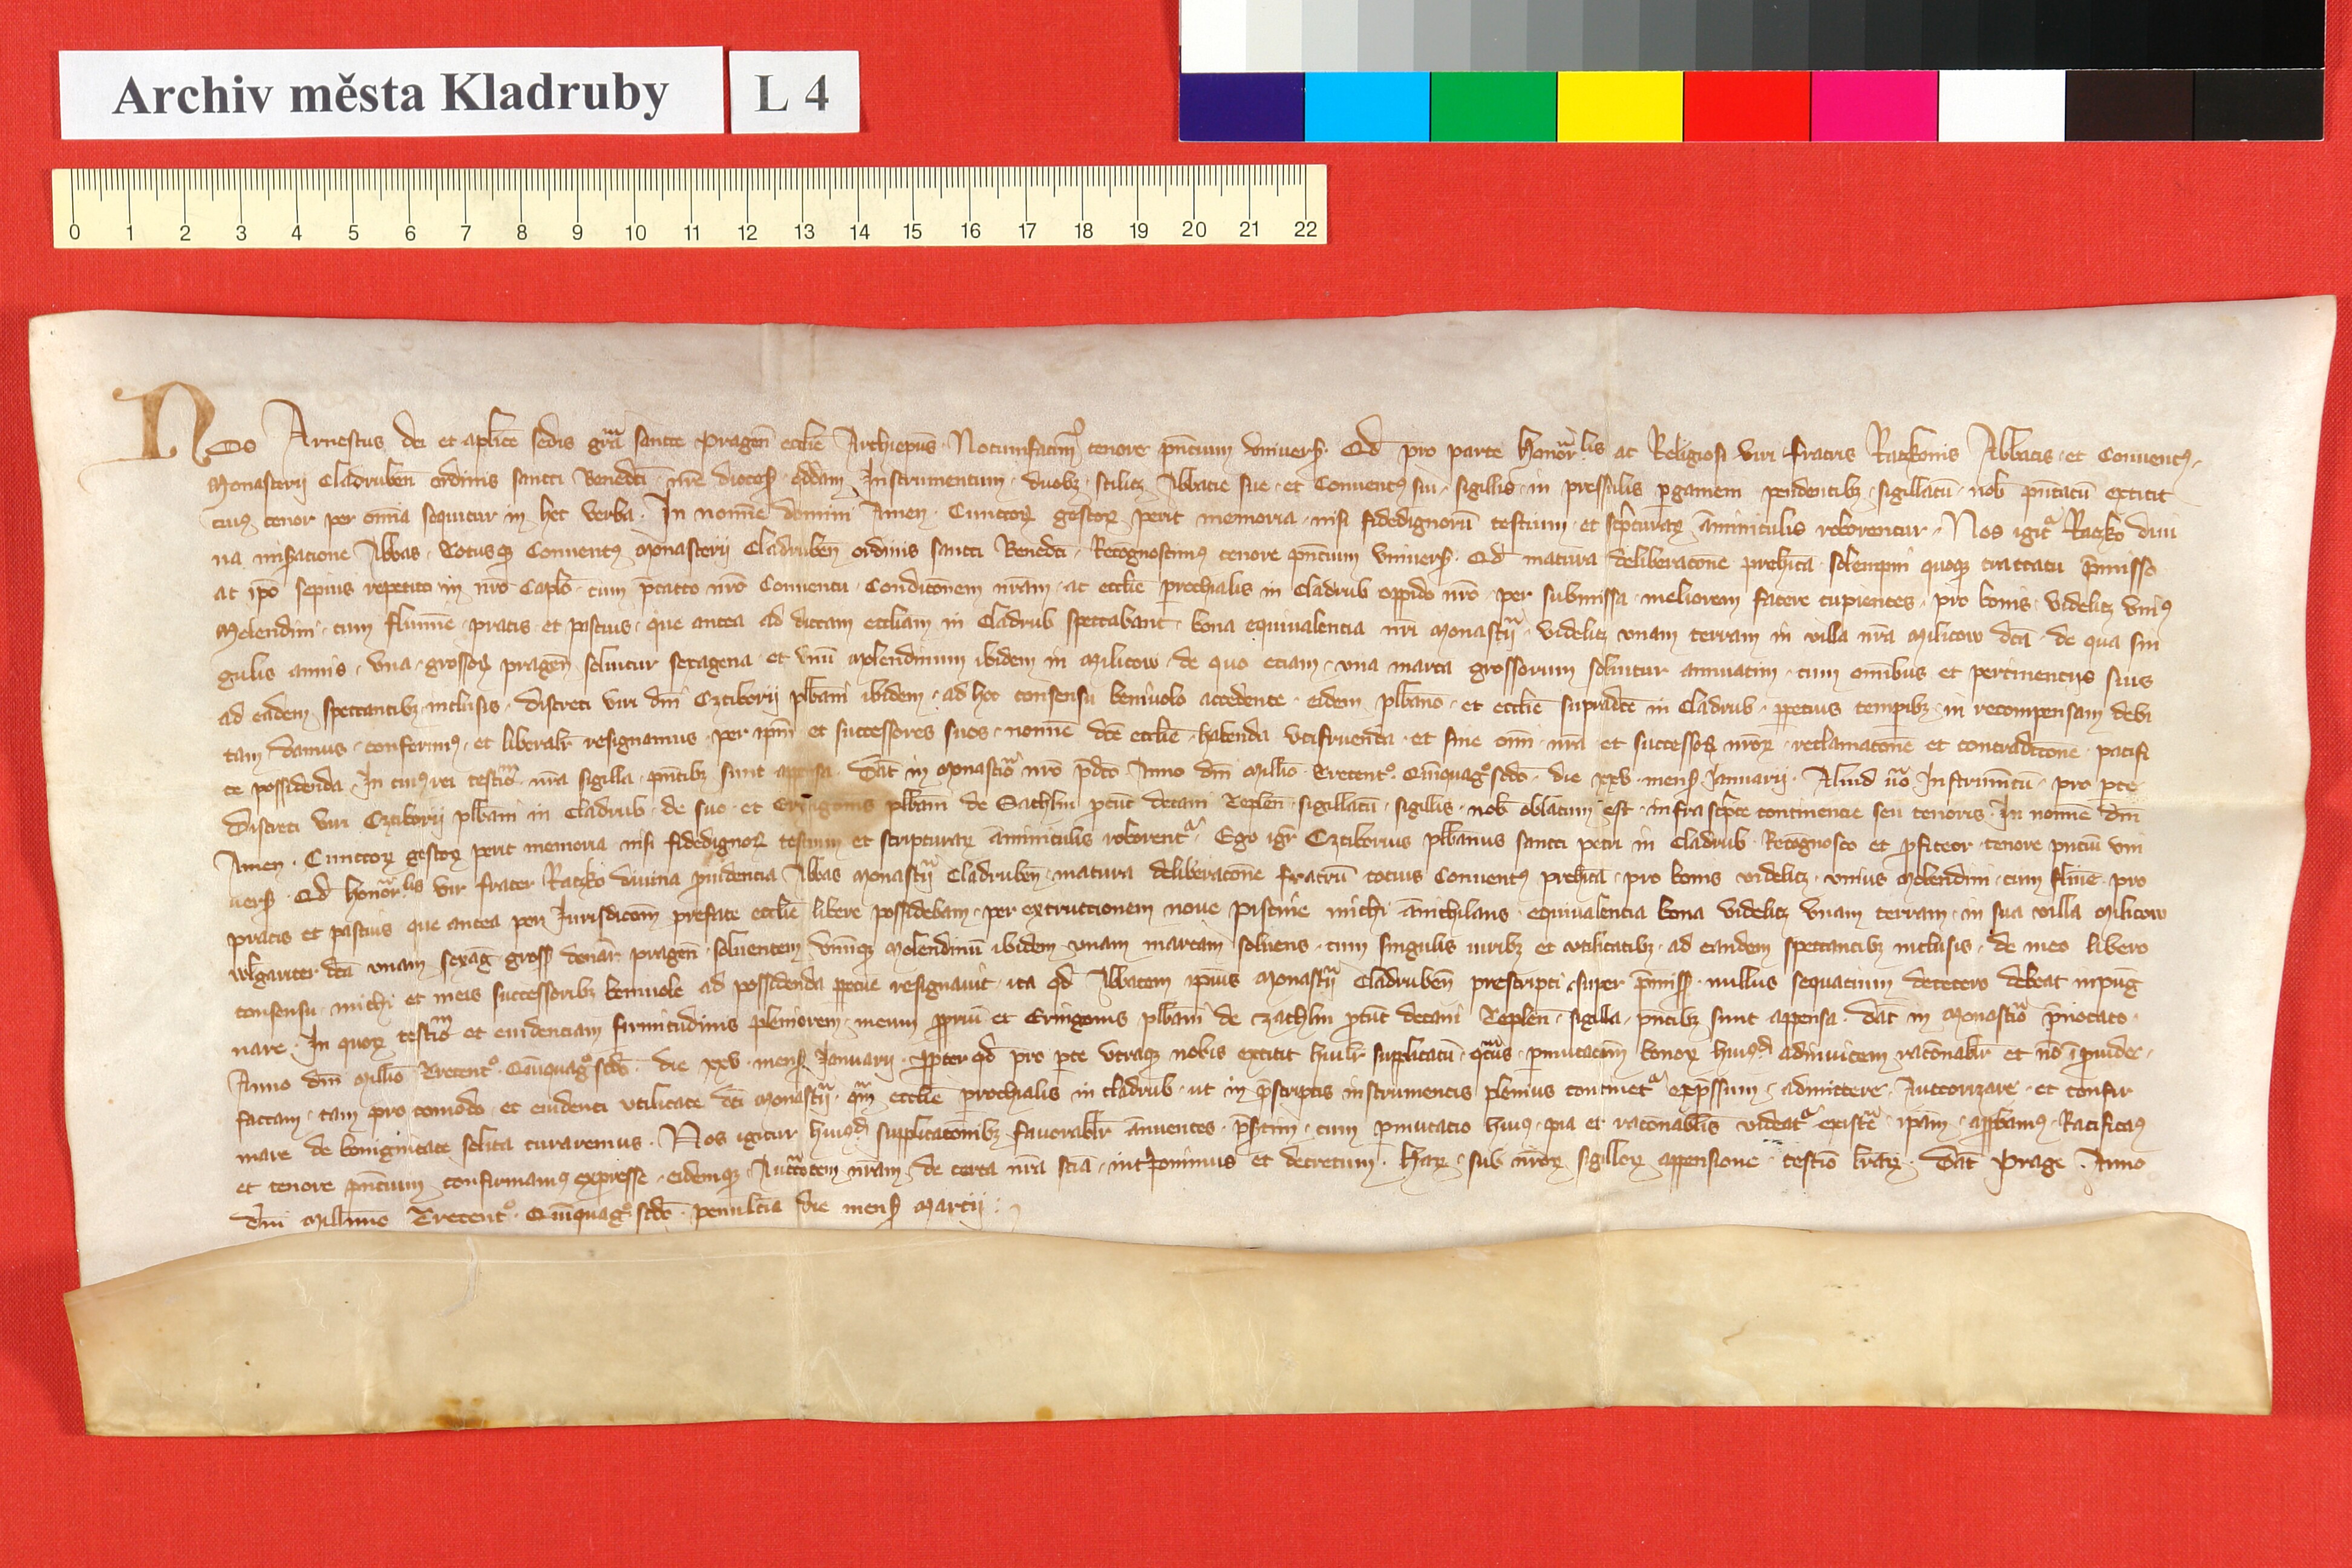 Archiv města Kladruby
L 4
0 1 2 3 4 5 6 7 8 9 10 11 12 13 14 15 16 17 18 19 20 21 22
Nos Arnestus dei et aplice sedis gra sancte Pragen ecclie Archiepus Notumfacim9 tenore pntium vniuers. Qd pro parte honorlis ac Religiosi viri fratris Raczkonis Abbatis et Conuent9
Monasterij Cladruben ordinis sancti Benedci nre dioces. qddam Instrumentum duobz scilicz Abbatie sue et Conuent9 sui sigillis in pressilis pgameni pendentibz sigillatu nob pntatu extitit
cui9 tenor per omia sequitur in hec verba. In nomine domini Amen. Cunctoꝝ gestoꝝ perit memoria nisi fidedignoru testium et scpturaꝝ aminiculis roborentur. Nos igit Raczko diui
na miseratione Abbas Totusqz Conuent9 Monasterij Cladruben ordinis sancti Benedci Recognoscim9 tenore pntium vniuers. Qd matura deliberacone prehita solempni quoqz tractatu pmisso
ac ipo sepius repetito in nro Caplo cum ptacto nro Conuentu Condiconem nram ac ecclie prochialis in Cladrub oppido nro per submissa meliorem facere cupientes pro bonis videlicz vni9
Molendini cum flumine pratis et pascuis que antea ad dictam eccliam in Cladrub spectabant bona equiualencia nri monastrij videlicz vnam terram in villa nra Milicow dcta de qua sin
gulis annis vna grossoꝝ pragen soluitur sexagena et vnu Molendinum ibidem in Milicow de quo eciam vna marca grossorum soluitur annuatim cum omibus et pertinencijs suis
ad eadem spectantibz inclusis discreti viri dni Cztiborij plbani ibidem ad hoc consensu beniuolo accedente eidem plbano et ecclie supradce in Cladrub ppetuis tempibz in recompensam debi
tam damus conferim9 et liberalr resignamus per ipm et successores suos nomine dce ecclie habenda vtifruenda et sine omi nra et successoꝝ nroꝝ reclamacone et contradiccone pacifi
ce possidenda. In cui9 rei testiom nra sigilla pntibz sunt appensa. Dat in Monastio nro pdco Anno dni Millio Trecento Quinquago scdo die xxv mens Januarij. Aliud uo Instrumtu pro pte
discreti viri Cztiborij plbani in Cladrub de suo et Eringonis plbani de Sathlin ptuc decani Teplen sigillatu sigillis nob oblatum est infrascpte continencie seu tenoris. In nomine dni
Amen. Cunctoꝝ gestoꝝ perit memoria nisi fidedignoꝝ testium et scripturaꝝ aminiculis roborent. Ego igr Cztiborius plbanus sancti petri in Cladrub Recognosco et pfiteor tenore pntiu vni
uers. Qd honorlis vir frater Raczko diuina puidencia Abbas Monastrij Cladruben matura deliberacone fratru totius Conuent9 prehita pro bonis videlicz vnius Molendini cum flumine pro
pratis et pascuis que antea per Jurisdicom prefate ecclie libere possidebam per extructionem noue piscine michi anichilans equiualencia bona videlicz vnam terram in sua villa Milicow
wlgariter dcta vnam sexag gross denar pragen soluentem vnuqz Molendinu ibidem vnam marcam soluens cum singulis iuribz et vtilitatibz ad eandem spectantibz inclusis de meo libero
consensu michi et meis successoribz beniuole ad possidenda ppetue resignauit ita qd Abbatem ipsius Monastrij Cladruben prescripti super pmiss nullus sequacium decetero debeat inpug
nare. In quoꝝ testiom et euidenciam firmitudinis pleniorem meum ppriu et Eringonis plbani de Czathlin ptuc decani Teplen sigilla pntibz sunt appensa. Dat in Monastio pnotato
Anno dni Millio Trecento Quinquago scdo die xxv mens Januarij. Propter qd pro pte vtraqz nobis extitit huilr supplicatu qtus pmutacom bonoꝝ hui9di adinuicem raconablr et no ipuide
factam tam pro comodo et euidenti vtilitate dci Monastrij qm ecclie prochialis in Cladrub ut in pscriptis instrumentis plenius continet expssum admittere Auctorizare et confir
mare de benignitate solita curaremus. Nos igitur hui9di supplicatonibz fauorablr annuentes psertim cum pmutacio hui9 pia et raconabilis videat existe ipam appbam9 Ratificam9
et tenore pntium confirmam9 expresse eidemqz Auctotem nram de certa nra scia interponimus et decretum. Haꝝ sub nroꝝ sigilloꝝ appensione testio lraꝝ. Dat Prage Anno
dni Millimo Trecento Quinquago scdo penultia die mens Marcij